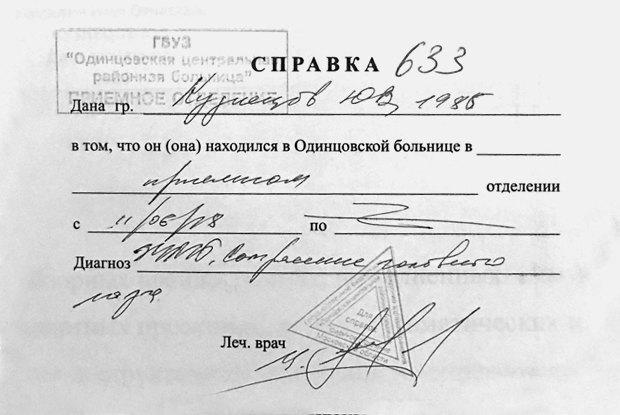 ГБУЗ
"Одинцовская центральная
районная больница"
ПРИЕМНОЕ ОТДЕЛЕНИЕ
СПРАВКА 633
Дана гр. Кузнецов Ю.В. 1985
в том, что он (она) находился в Одинцовской больнице в
приемном отделении
с 11/06/18 по
Диагноз ЗЧМТ, Сотрясение головного
мозга
Для
справок
Московской области
Леч. врач